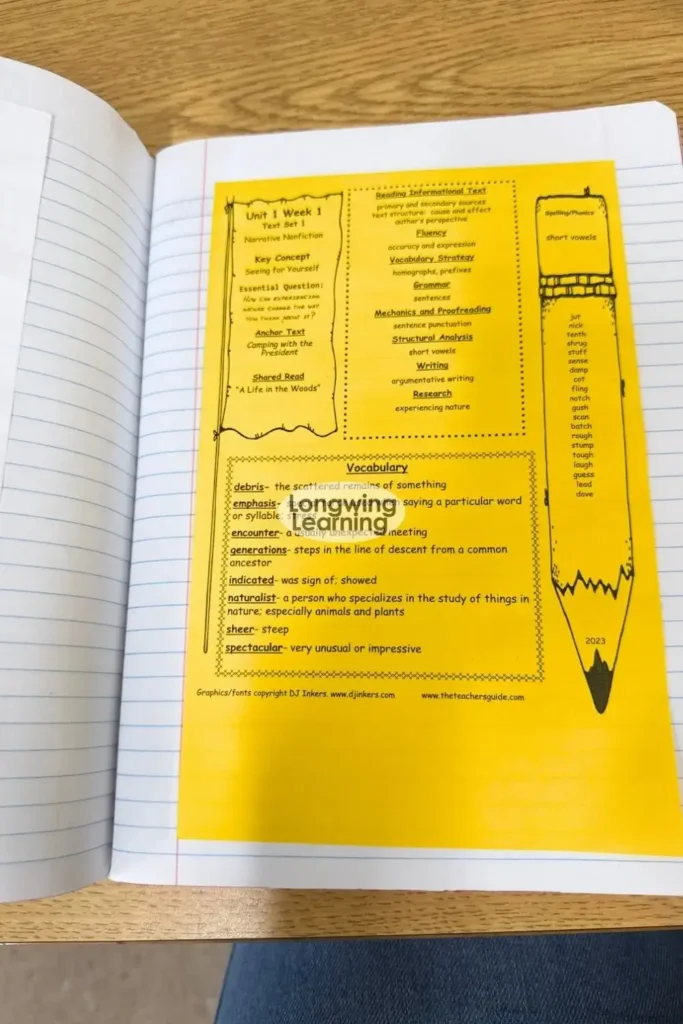 Unit 1 Week 1
Text Set 1
Narrative Nonfiction
Key Concept
Seeing for Yourself
Essential Question:
How can experiencing
nature change the way
you think about it?
Anchor Text
Camping with the
President
Shared Read
"A Life in the Woods"
Reading Informational Text
primary and secondary sources
text structure: cause and effect
author's perspective
Fluency
accuracy and expression
Vocabulary Strategy
homographs, prefixes
Grammar
sentences
Mechanics and Proofreading
sentence punctuation
Structural Analysis
short vowels
Writing
argumentative writing
Research
experiencing nature
Spelling/Phonics
short vowels
jut
nick
tenth
shrug
stuff
sense
damp
cot
fling
notch
gush
scan
batch
rough
stump
tough
laugh
guess
lead
dove
2023
Vocabulary
debris- the scattered remains of something
emphasis- saying a particular word
or syllable; stress
encounter- a usually unexpected meeting
generations- steps in the line of descent from a common
ancestor
indicated- was sign of; showed
naturalist- a person who specializes in the study of things in
nature; especially animals and plants
sheer- steep
spectacular- very unusual or impressive
Longwing
Learning
Graphics/fonts copyright DJ Inkers. www.djinkers.com www.theteachersguide.com